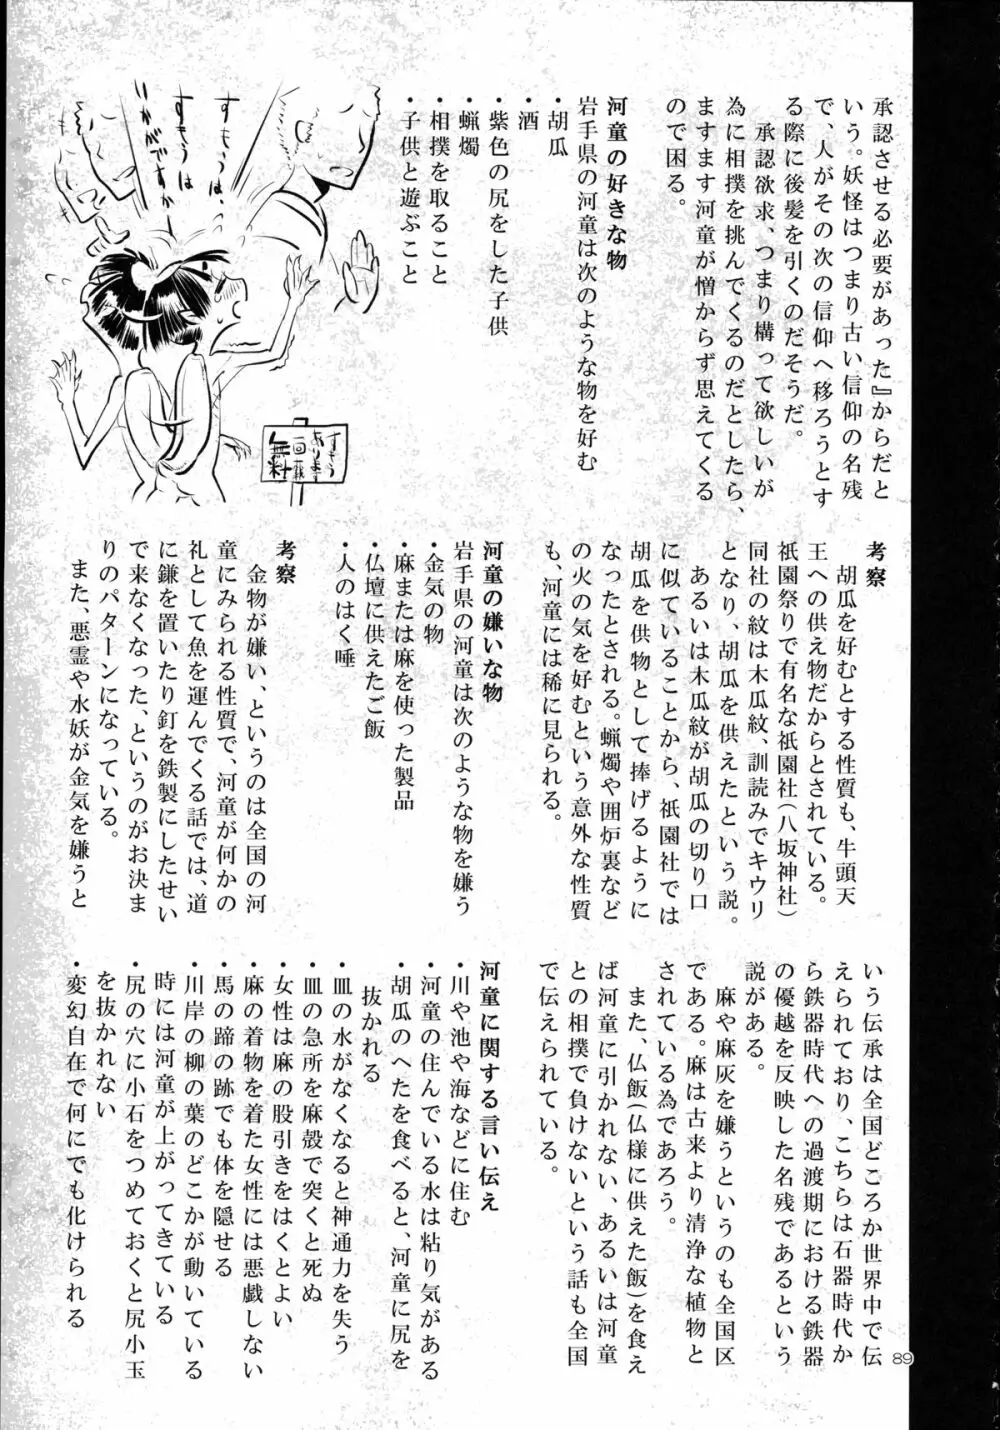 承認させる必要があった』からだと
いう。妖怪はつまり古い信仰の名残
で、人がその次の信仰へ移ろうとす
る際に後髪を引くのだそうだ。
承認欲求、つまり構って欲しいが
為に相撲を挑んでくるのだとしたら、
ますます河童が憎からず思えてくる
ので困る。
河童の好きな物
岩手県の河童は次のような物を好む
・胡瓜
・酒
・紫色の尻をした子供
・蝋燭
・相撲を取ること
・子供と遊ぶこと
すもうは、、
すもうは
いかがですかー
すもう
あります
一回
無料
考察
胡瓜を好むとする性質も、牛頭天
王への供え物だからとされている。
祇園祭りで有名な祇園社(八坂神社)
同社の紋は木瓜紋、訓読みでキウリ
となり、胡瓜を供えたという説。
あるいは木瓜紋が胡瓜の切り口
に似ていることから、祇園社では
胡瓜を供物として捧げるように
なったとされる。蝋燭や囲炉裏など
の火の気を好むという意外な性質
も、河童には稀に見られる。
河童の嫌いな物
岩手県の河童は次のような物を嫌う
・金気の物
・麻または麻を使った製品
・仏壇に供えたご飯
・人のはく唾
考察
金物が嫌い、というのは全国の河
童にみられる性質で、河童が何かの
礼として魚を運んでくる話では、道
に鎌を置いたり釘を鉄製にしたせい
で来なくなった、というのがお決ま
りのパターンになっている。
また、悪霊や水妖が金気を嫌うと
いう伝承は全国どころか世界中で伝
えられており、こちらは石器時代か
ら鉄器時代への過渡期における鉄器
の優越を反映した名残であるという
説がある。
麻や麻灰を嫌うというのも全国区
である。麻は古来より清浄な植物と
されている為であろう。
また、仏飯(仏様に供えた飯)を食え
ば河童に引かれない、あるいは河童
との相撲で負けないという話も全国
で伝えられている。
河童に関する言い伝え
・川や池や海などに住む
・河童の住んでいる水は粘り気がある
・胡瓜のへたを食べると、河童に尻を
抜かれる
・皿の水がなくなると神通力を失う
・皿の急所を麻殻で突くと死ぬ
・女性は麻の股引きをはくとよい
・麻の着物を着た女性には悪戯しない
・馬の蹄の跡でも体を隠せる
・川岸の柳の葉のどこかが動いている
時には河童が上がってきている
・尻の穴に小石をつめておくと尻小玉
を抜かれない
・変幻自在で何にでも化けられる
89